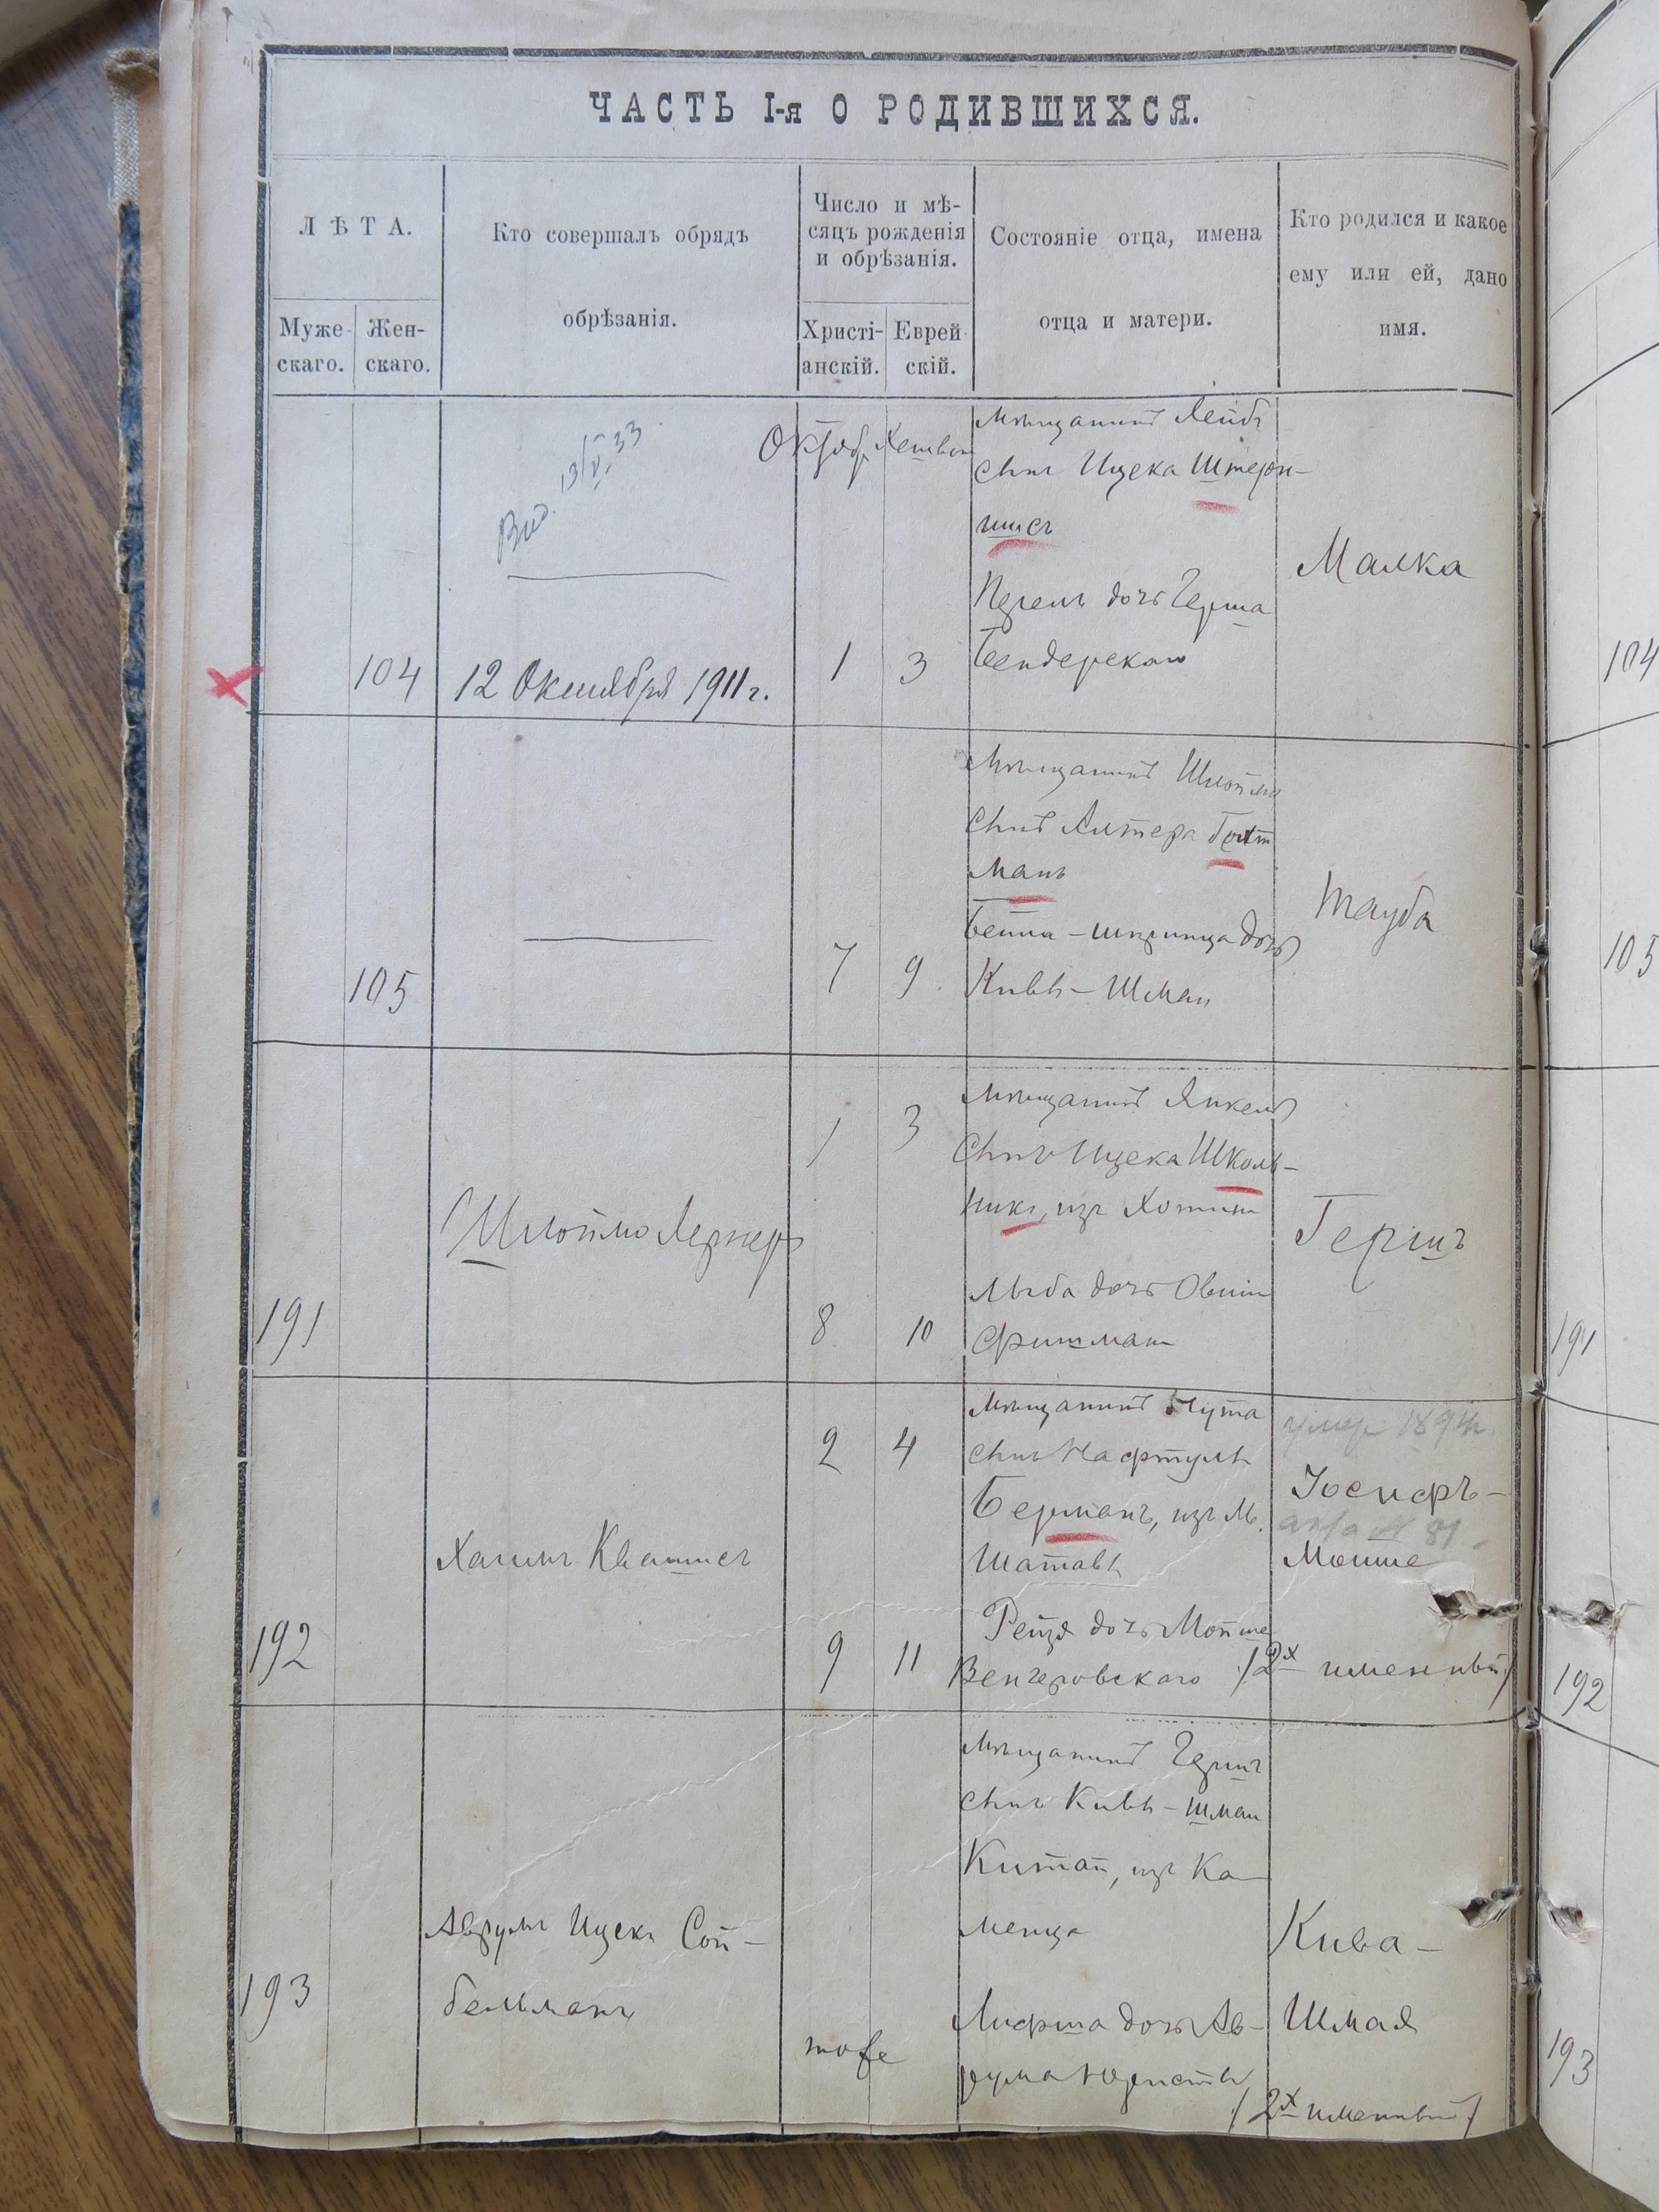 ЧАСТЬ I-я О РОДИВШИХСЯ.
ЛѢТА.
Муже-
скаго.
Жен-
скаго.
Кто совершалъ обрядъ
обрѣзанія.
Число и мѣ-
сяцъ рожденія
и обрѣзанія.
Христі-
анскій.
Еврей
скій.
Состояніе отца, имена
отца и матери.
Кто родился и какое
ему или ей, дано
имя.
104
13/V 33
12 Октября 1911 г.
Октяб.
1
3
Мѣщанинъ Лейбъ
сынъ Ицека Штерн-
шисъ
Перель дочь Герша
Бендерскаго
Малка
104
105
7
9
Мѣщанинъ Шлойма
сынъ Алтера
манъ
дочь
Кивы-Шмаи
Тауба
105
191
Шлоймо Лернеръ
1
3
8
10
Мѣщанинъ Янкель
сынъ Ицека Школь-
никъ, изъ Хотина
Лыба дочь
Фишмана
Гершъ
191
192
Хаимъ Квашисъ
2
4
9
11
Мѣщанинъ Нута
сынъ Нафтулы
Берманъ, изъ м.
Шатавы
Рейзя дочь Мойше
Венгеровскаго
умер 1894
Іосифъ-
акта № 81.
Мойше
/2х именный/
192
193
Аврумъ Ицекъ Сой-
бельманъ
тоже
Мѣщанинъ Гершъ
сынъ Кивы-Шмаи
Китай, изъ Ка
менца
дочь Ав-
рума
Кива-
Шмая
/2х именный/
193